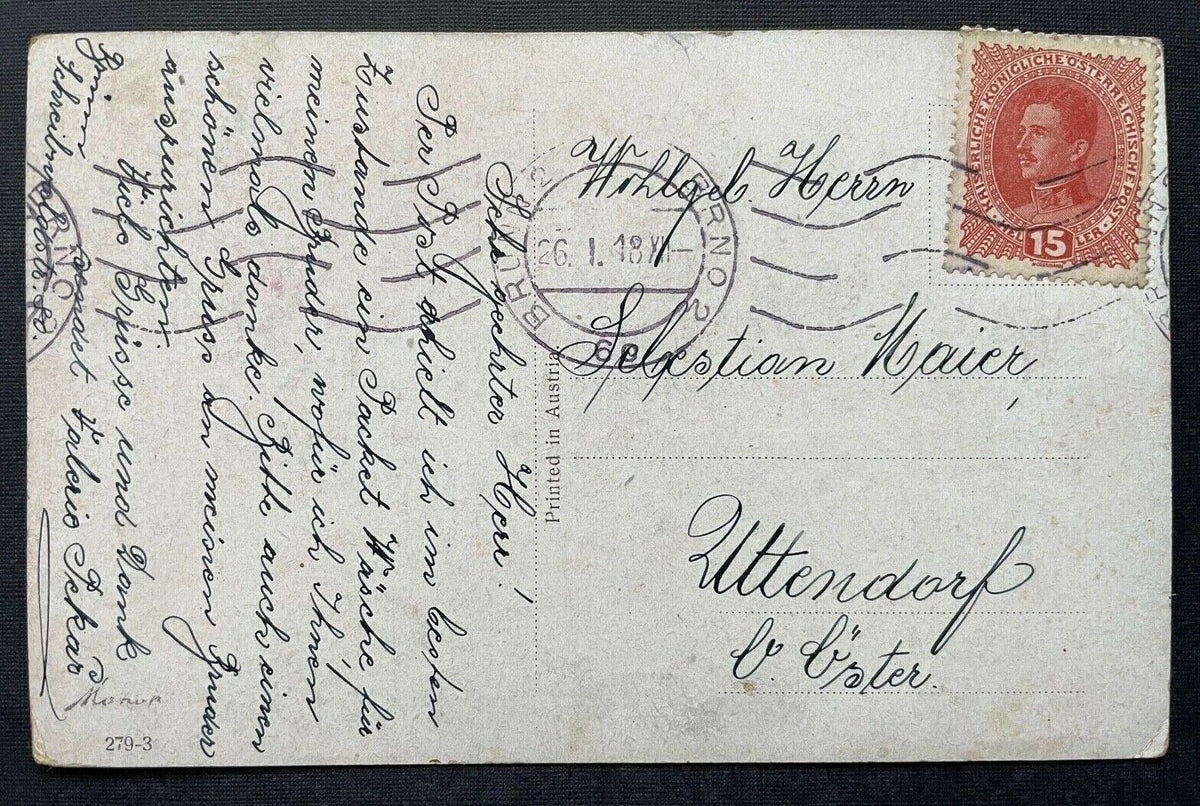 Sehr geehrter Herr!
Per Post erhielt ich im besten
Zustande ein Packet Wäsche für
meinen Bruder, wofür ich Ihnen
vielmals danke. Bitte auch einen
schönen Gruss an meinen Bruder
auszurichten.
Viele Grüsse und Dank
sendet Valerie Pekař
Brünn
Schreibwaldstr.
279-3
Printed in Austria
KAISERLICHE KÖNIGLICHE ÖSTERREICHISCHE POST
15
BRNO 2
26. I. 18
Wohlgeb. Herrn
Sebastian Maier,
Uttendorf
O. Öster.
BRNO